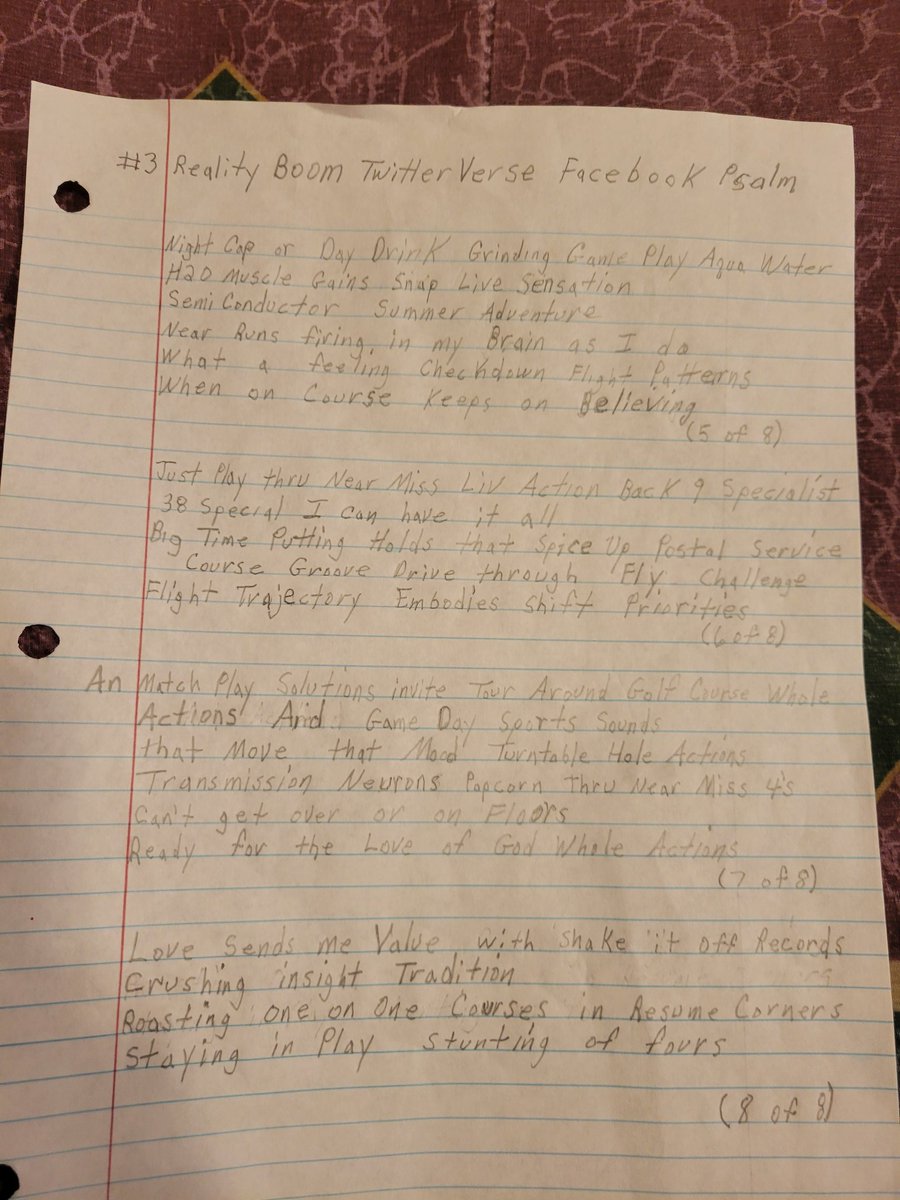 #3 Reality Boom TwitterVerse Facebook Psalm
Night Cap or Day Drink Grinding Game Play Aqua Water
H2O Muscle Gains Snap Live Sensation
Semi Conductor Summer Adventure
Near Runs firing in my Brain as I do
What a feeling Checkdown Flight Patterns
When on Course Keeps on Believing
(5 of 8)
Just Play thru Near Miss Liv Action Back 9 Specialist
38 Special I Can have it all
Big Time Putting Holds that Spice Up Postal Service
Course Groove Drive through Fly Challenge
Flight Trajectory Embodies Shift Priorities
(6 of 8)
An Match Play Solutions invite Tour Around Golf Course Whole
Actions And Game Day Sports Sounds
that Move that Mood Turntable Hole Actions
Transmission Neurons Popcorn Thru Near Miss 4's
Can't get over or on Floors
Ready for the Love of God Whole Actions
(7 of 8)
Love Sends me Value with Shake it off Records
Crushing insight Tradition
Roasting one on One Courses in Resume Corners
Staying in Play stunting of fours
(8 of 8)